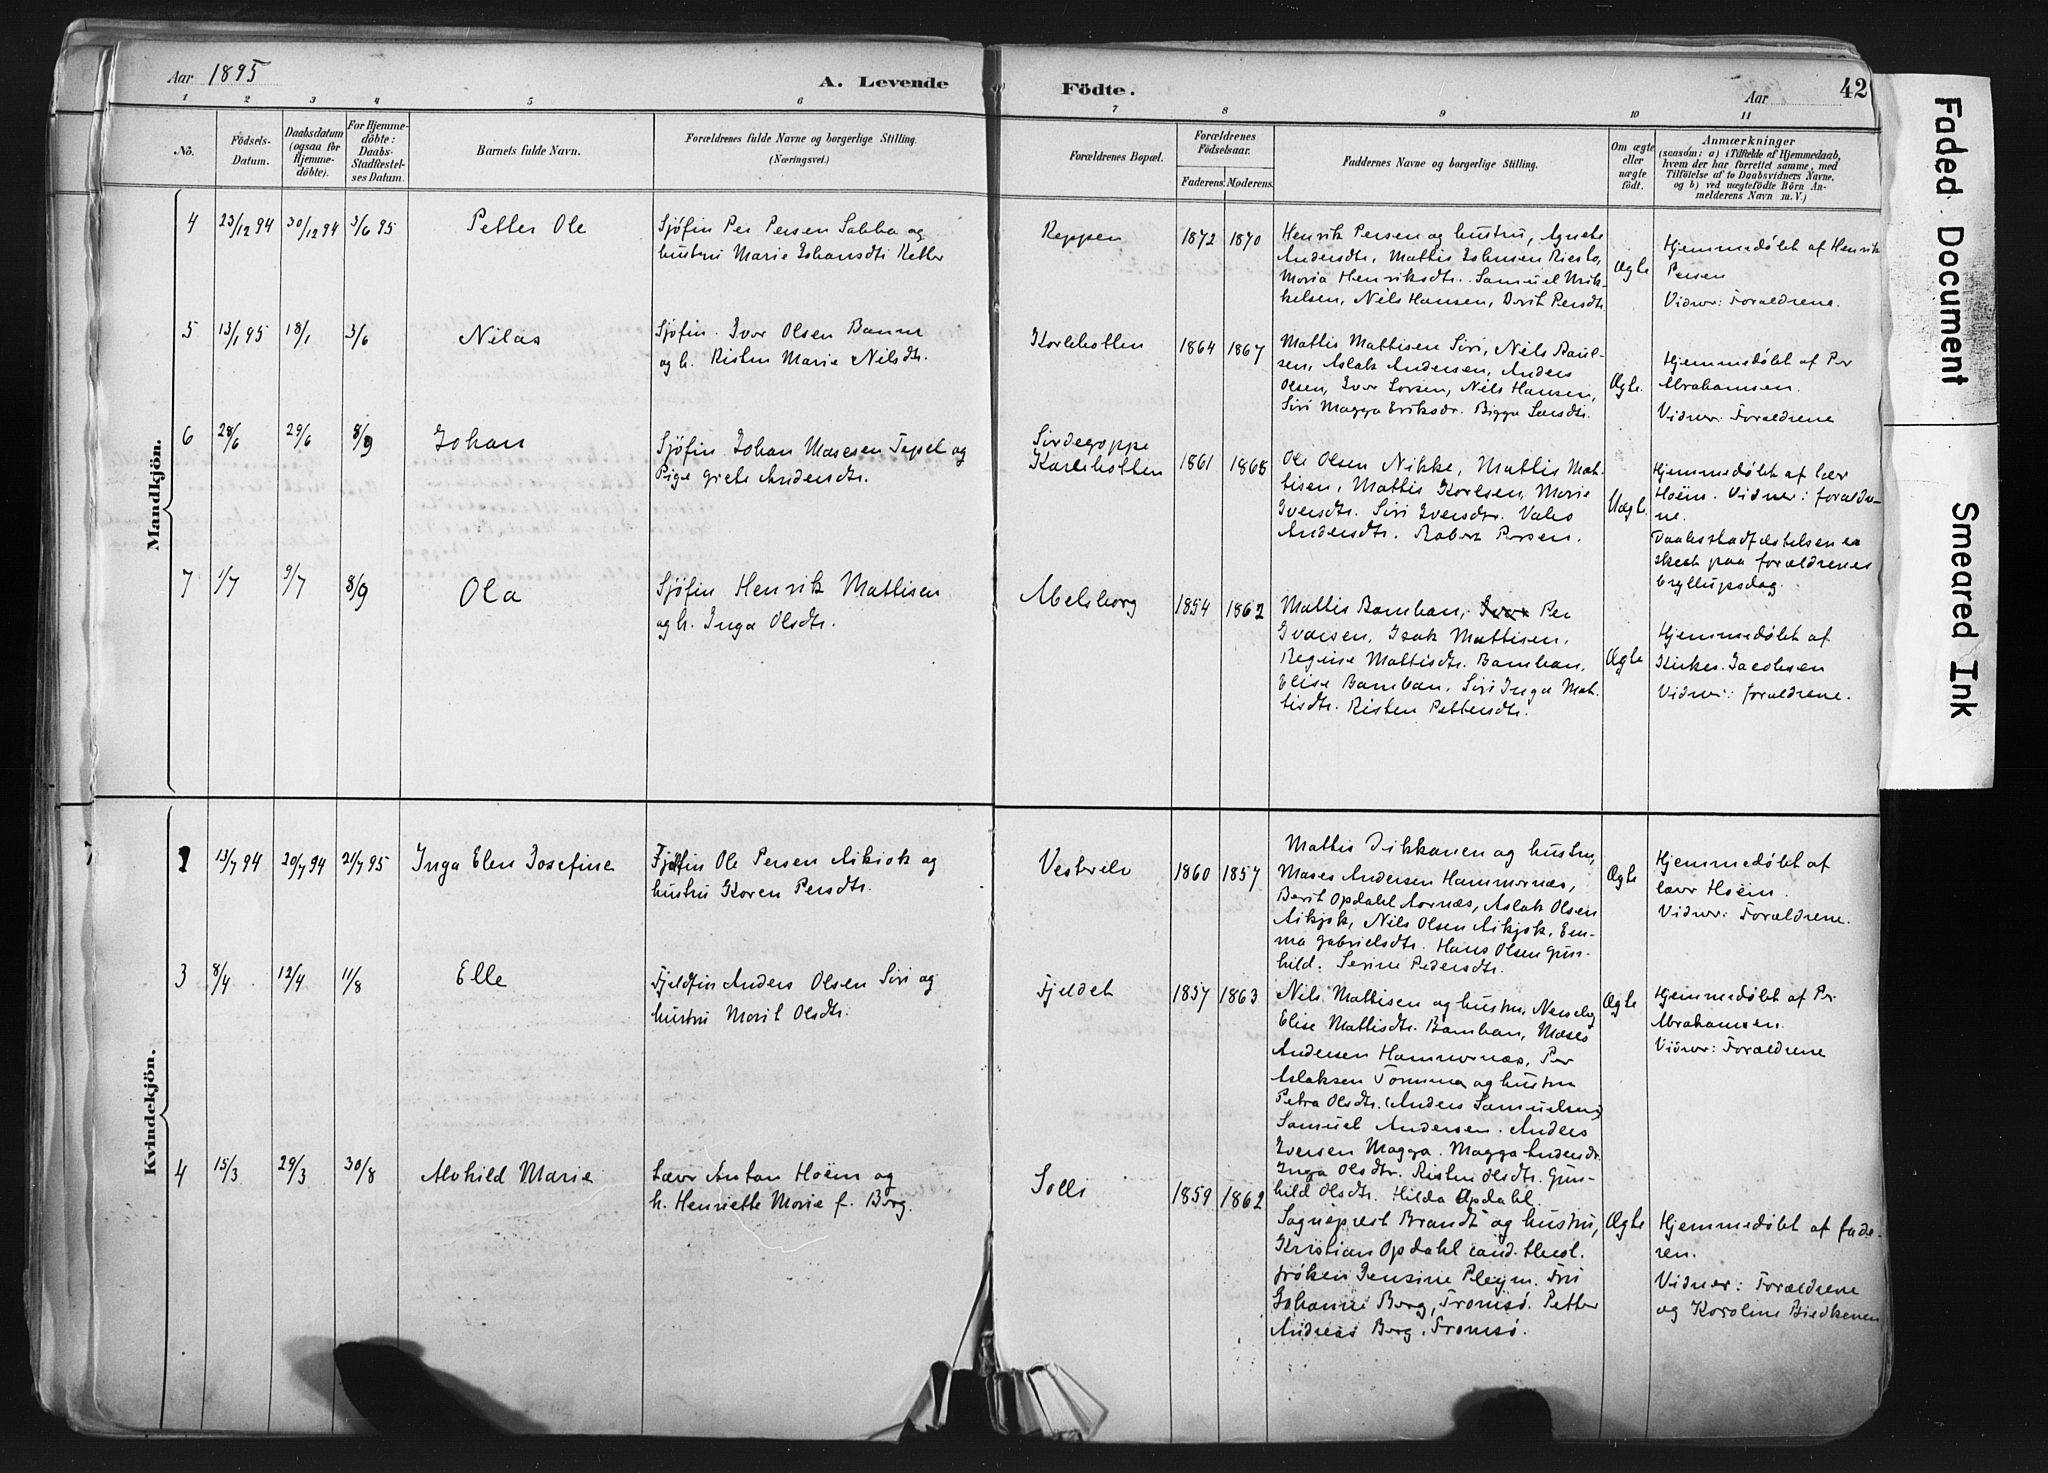 Aar 1895
A. Levende
Födte.
Aar
42
1 2 3 4 5 6 7 8 9 10 11
No.
Födsels-
Datum.
Daabsdatum
(ogsaa for
Hjemme-
döbte).
For Hjemme-
döbte:
Daabs-
Stadfæstel-
ses Datum.
Barnets fulde Navn.
Forældrenes fulde Navne og borgerlige Stilling.
(Næringsvei.)
Forældrenes Bopæl.
Forældrenes
Födselsaar.
Faderens. Moderens.
Faddernes Navne og borgerlige Stilling.
Om ægte
eller
uægte
födt.
Anmærkninger
(saasom: a) i Tilfælde af Hjemmedaab,
hvem der har forrettet samme, med
Tilföielse af to Daabsvidners Navne,
og b) ved uægtefödte Börn An-
melderens Navn m. V.)
Mandkjön.
4 23/12 94 30/12 94 3/6 95 Petter Ole
Sjöfin Per Persen Sabba og
hustru Marie Johansdtr
Reppen
1872 1870
Henrik Persen og hustru,
Andersdtr, Mattis Johnsen
Maria Henriksdtr. Samuel Mik-
kelsen, Nils Hansen, Berit Persdtr
Ægte
Hjemmedøbt af Henrik
Persen
Vidner: Forældrene.
5 13/1 95 18/1 3/6 Nilas
Sjöfin. Iver Olsen
og h. Risten Marie Nilsdtr.
1864 1867
Mattis Mattisen Siri, Nils Paul-
sen, Aslak Andersen, Anders
Olsen, Iver Larsen, Nils Hansen,
Siri Magga Eriksdr. Bigga Larsdtr.
Ægte.
Hjemmedøbt af Per
Abrahamsen.
Vidner: Forældrene
6 28/6 29/6 8/9 Johan
Sjöfin Johan Mosesen og
Pige Grete Andersdtr.
1861
Ole Olsen Nikke, Mattis Mat-
tisen, Mattis Karlsen, Marie
Iversdtr. Siri Iversdtr.
Andersdtr. Robert Persen.
Uægt.
Hjemmedøbt af lær
Hoëm. Vidner: forældre-
ne.
Daabsstadfæstelsen er
skeet paa forældrenes
bryllupsdag.
7 1/7 9/7 8/9 Ola
Sjöfin Henrik Mattisen
og h. Inga Olsdtr.
Abelsborg
1854 1862
Mattis Banban, Per
Ivarsen, Isak Mattisen,
Regine Mattisdtr. Banban,
Elise Banban, Siri Inga Mat-
tisdtr. Risten Pettersdtr.
Ægte
Hjemmedøbt af
Kirkes. Jacobsen
Vidner: forældrene.
Kvindekjön.
1 13/7 94 20/7 94 21/7 95 Inga Elen Josefine
Fjeldfin Ole Persen Aikiok og
hustru Karen Persdtr.
Vesterelv
1860 1857
Mattis Dikkanen og hustru,
Moses Andersen Hammernæs,
Berit Opdahl Aornæs, Aslak Olsen
Aikjok, Nils Olsen Aikjok, Em-
ma Gabrielsdtr. Hans Olsen Gun-
hild. Serine Pedersdtr.
Ægte
Hjemmedøbt af
lærer Hoëm.
Vidner: Forældrene.
3 8/4 12/4 11/8 Elle
Fjeldfin Anders Olsen Siri og
hustru Marit Olsdtr.
Fjeldet
1857 1863
Nils Mattisen og hustru, Nesseby
Elise Mattisdtr. Banban, Moses
Andersen Hammernæs, Per
Aslaksen Tomma og hustru
Petra Olsdtr. (Anders Samuelsen)
Samuel Andersen. Anders
Iversen Magga. Magga Andersdr.
Inga Olsdtr. Risten Olsdtr. Gun-
hild Olsdtr. Hilda Opdahl.
Ægte
Hjemmedøbt af Per
Abrahamsen.
Vidner: Forældrene
4 15/3 29/3 30/8 Alvhild Marie
Lærer Anton Hoëm og
h. Henriette Marie f. Borg.
Solli
1859 1862
Sogneprest Brandt og hustru,
Kristian Opdahl cand. theol.
frøken Jensine Pleym. Frk
Johanne Borg, Tromsø. Petter
Andreas Borg, Tromsø.
Ægte
Hjemmedøbt af fade-
ren.
Vidner: Forældrene
og Karoline
Faded Document
Smeared Ink